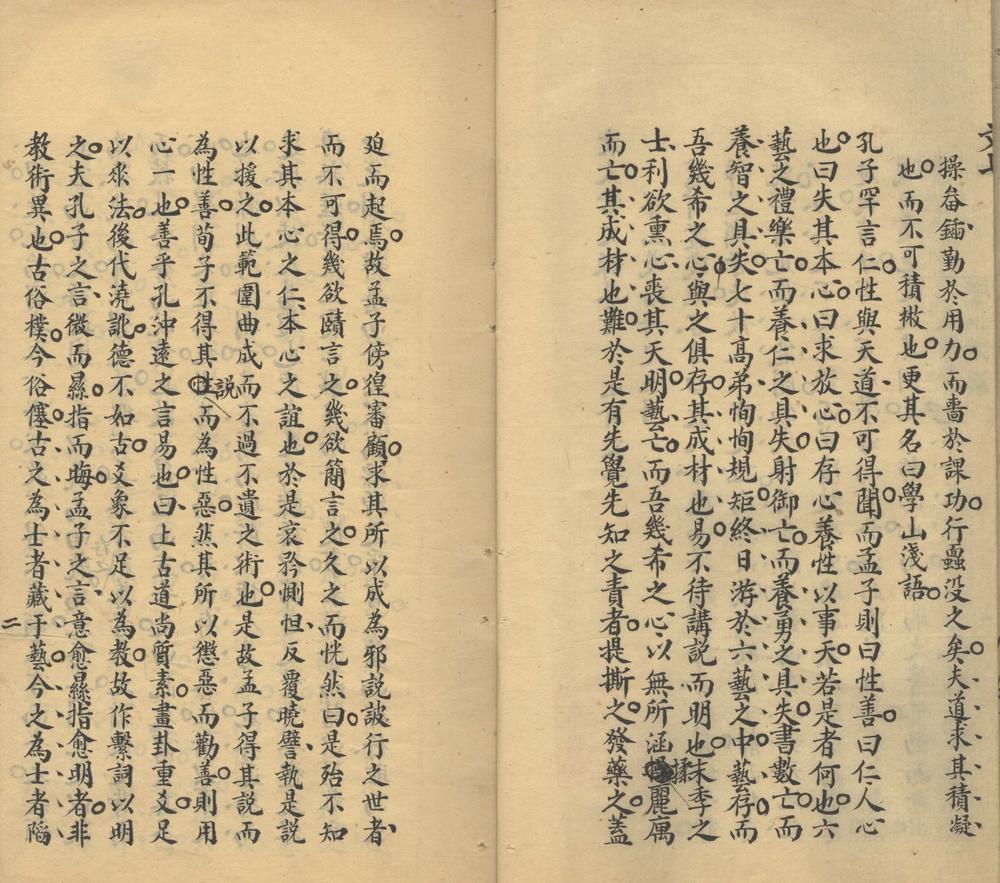 操畚鍤勤於用力而嗇於課功行蠹没之矣夫道求其積凝
也而不可積掀也更其名曰學山淺語
孔子罕言仁性與天道不可得聞而孟子則曰性善曰仁人心
也曰失其本心曰求放心曰存心養性以事天若是者何也六
藝之禮樂亡而養仁之具失射御亡而養勇之具失書數亡而
養智之具失七十高弟恂恂規矩終日游於六藝之中藝存而
吾幾希之心與之俱存其成材也易不待講説而明也末季之
士利欲熏心喪其天明藝亡而吾幾希之心以無所涵揉麗厲
而亡其成材也難於是有先覺先知之責者提撕之發藥之蓋
迫而起焉故孟子傍徨審顧求其所以成為邪説詖行之世者
而不可得幾欲賾言之幾欲簡言之久之而恍然曰是殆不知
求其本心之仁本心之誼也於是哀矜惻怛反覆曉譬執是説
以援之此範圍曲成而不過不遺之術也是故孟子得其説而
為性善荀子不得其説而為性惡然其所以懲惡而勸善則用
心一也善乎孔沖遠之言易也曰上古道尚質素畫卦重爻足
以垂法後代澆訛德不如古爻象不足以為教故作繫詞以明
之夫孔子之言微而㬎指而晦孟子之言意愈㬎指愈明者非
教術異也古俗樸今俗僿古之為士者藏于藝今之為士者陷
二